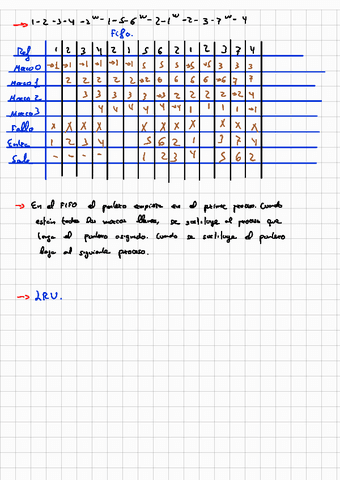 → 1-2-3-4-2ʷ-1-5-6ʷ-2-1ʷ-2-3-7ʷ-4
Fifo.
Ref 1 2 3 4 2 1 5 6 2 1 2 3 7 4
Marco 0 →1 →1 →1 →1 →1 →1 5 5 5 →5 →5 3 3 3
Marco 1 2 2 2 2 2 →2 6 6 6 6 →6 7 7
Marco 2 3 3 3 3 3 →3 2 2 2 2 →2 4
Marco 3 4 4 4 4 4 →4 1 1 1 1 →1
Fallo x x x x x x x x x x x
Entra 1 2 3 4 5 6 2 1 3 7 4
Sale - - - - 1 2 3 4 5 6 2
→ En el FIFO el puntero empieza en el primer proceso. Cuando
están todos los marcos llenos, se sustituye al proceso que
tenga el puntero asignado. Cuando se sustituye el puntero
baja al siguiente proceso.
→ LRU.